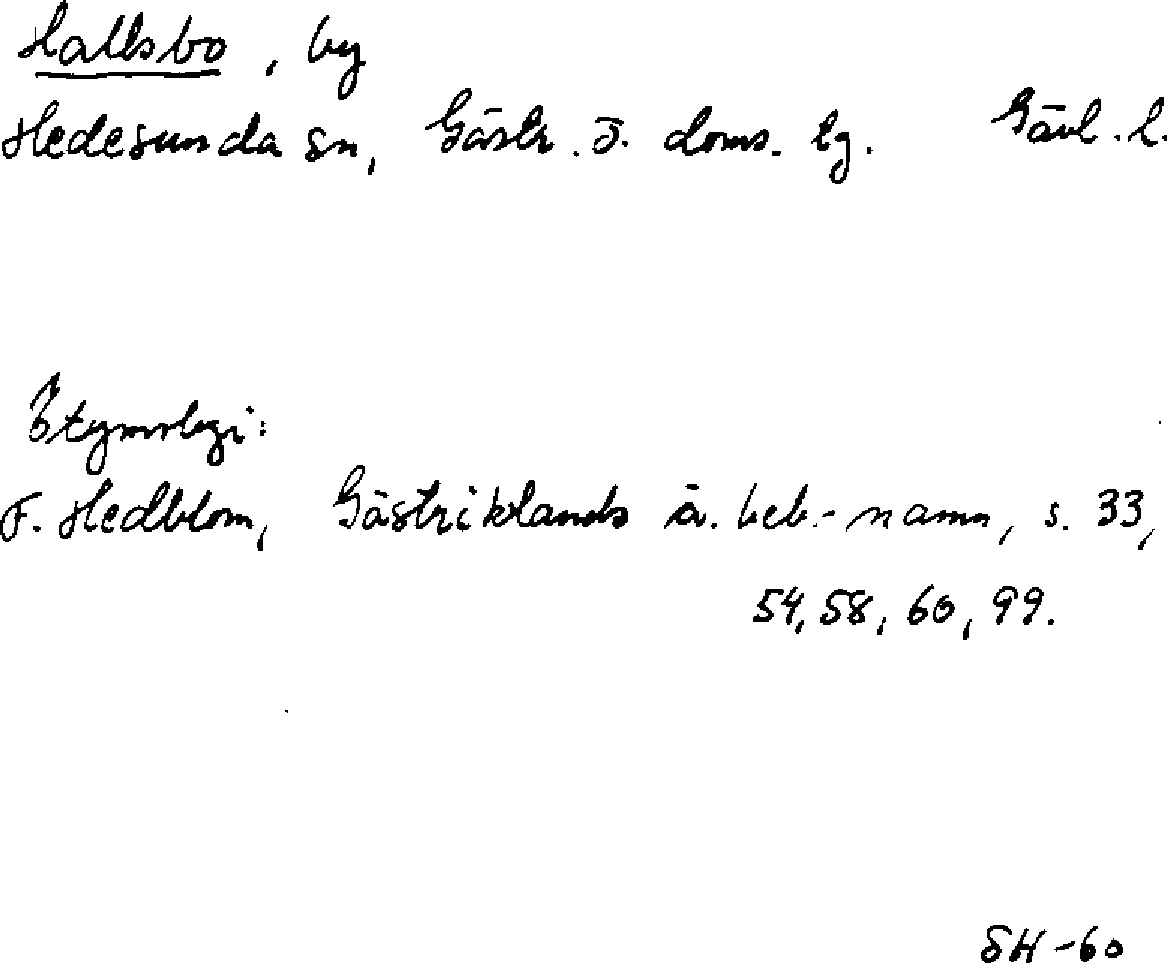 Hallsbo, by
Hedesunda sn, Gästr. ö. doms. lg. Gävl. l.
Etymologi:
F. Hedblom, Gästriklands ä. beb.-namn, s. 33,
54, 58, 60, 99.
SH-60